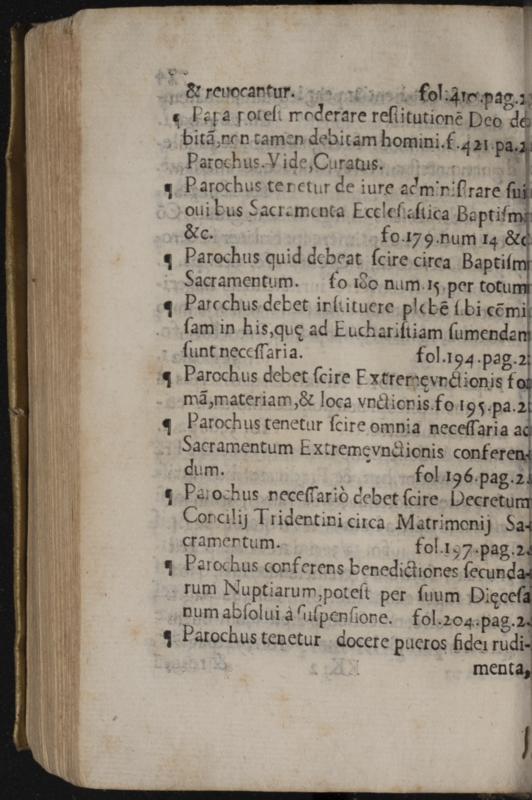 & reuocantur. fol.410.pag.2
¶ Papa potest moderare restitutionē Deo de
bitā,non tamen debitam homini.f.421.pa.2
Parochus.Vide,Curatus.
¶ Parochus tenetur de iure administrare sui
oui bus Sacramenta Ecclesiastica Baptism
&c. fo.179.num 14 &c
¶ Parochus quid debeat scire circa Baptism
Sacramentum. fo 180 num.15 per totum
¶ Parochus debet instituere plebē sibi cōmi
sam in his,quę ad Eucharistiam sumendam
sunt necessaria. fol.194.pag.2.
¶ Parochus debet scire Extremęvnctionis for
mā,materiam,& loca vnctionis.fo 195.pa.2
¶ Parochus tenetur scire omnia necessaria ad
Sacramentum Extremęvnctionis conferen-
dum. fol 196.pag.2.
¶ Parochus necessariò debet scire Decretum
Concilij Tridentini circa Matrimonij Sa-
cramentum. fol.197.pag.2.
¶ Parochus conferens benedictiones secunda-
rum Nuptiarum,potest per suum Dięcesa
num absolui à suspensione. fol.204.pag.2.
¶ Parochus tenetur docere pueros fidei rudi-
menta,